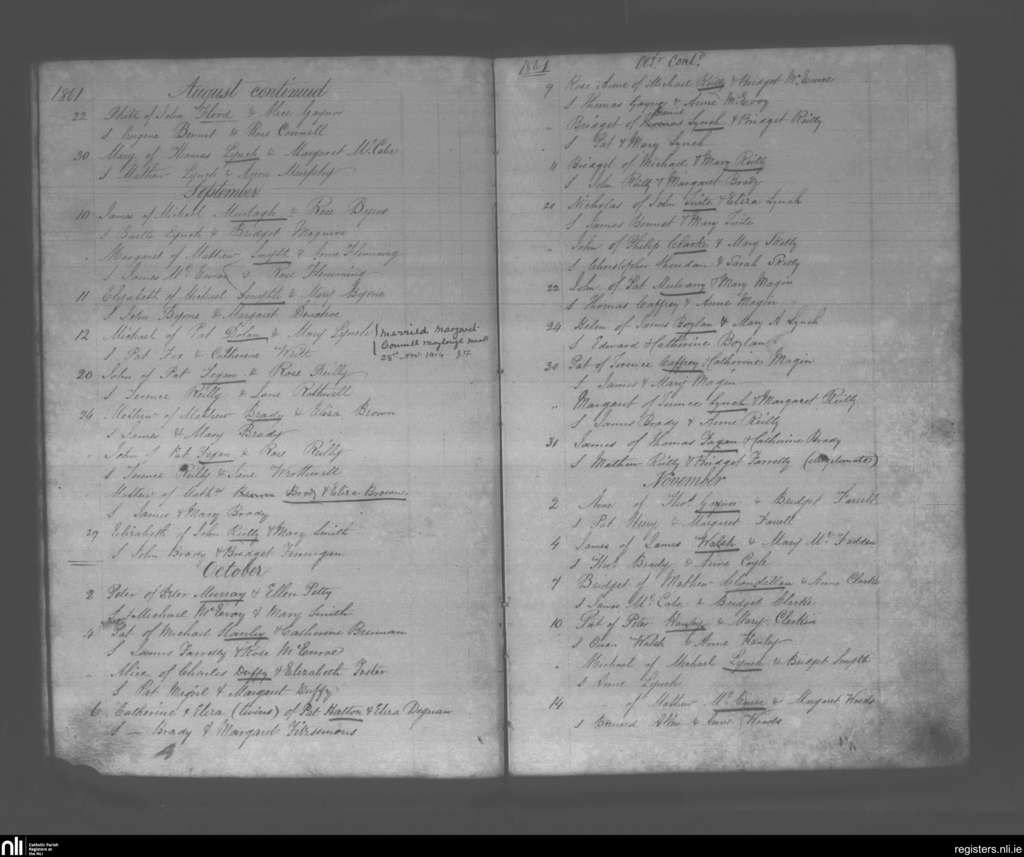 1861 August continued
22 Phill of John Flood & Alice Gaynor
S Eugene Bennet & Rose Connell
30 Mary of Thomas Lynch & Margaret McCabe
S Mathew Lynch & Anne Murphy
September
10 James of Michael Murtagh & Rose Byrne
S Bartle Lynch & Bridget Maguire
" Margaret of Mathew Smyth & Anne Flemming
S James McEnroe & Rose Flemming
11 Elizabeth of Michael Smyth & Mary Byrne
S John Byrne & Margaret Donohoe
12 Michael of Pat Dolan & Mary Lynch married Margaret
S Pat Fox & Catherine
Connell
1914
20 John of Pat Fegan & Rose Reilly
S Terence Reilly & Jane Rothwell
24 Mathew of Mathew Brady & Eliza Brown
S James & Mary Brady
" John of Pat Fegan & Rose Reilly
S Terence Reilly & Jane
Mathew of Mathw Brown Brady & Eliza Browne
S James & Mary Brady
29 Elizabeth of John Reilly & Mary Smith
S John Brady & Bridget Finnigan
October
2 Peter of Peter Murray & Ellen Petty
S Michael McEvoy & Mary Smith
4 Pat of Michael Hanley & Catherine Brennan
S James Farrelly & Rose McEnroe
" Alice of Charles Duffy & Elizabeth Foster
S Pat & Margaret Duffy
6 Catherine & Eliza (twins) of Pat Hatton & Eliza Degnan
S — Brady & Margaret Fitzsimons
1861 Octr Contd
9 Rose Anne of Michael Reilly & Bridget McEnroe
S Thomas & Anne McEvoy
" Bridget of Thomas Lynch & Bridget Reilly
S Pat & Mary Lynch
11 Bridget of Michael & Mary Reilly
S John Reilly & Margaret Brady
20 Nicholas of John Tuite & Eliza Lynch
S James Bennet & Mary Tuite
" John of Philip Clarke & Mary Skelly
S Christopher Sheridan & Sarah Reilly
22 John of Pat Mulvany & Mary Magin
S Thomas Caffrey & Anne Magin
24 Helen of James Boylan & Mary A Lynch
S Edward & Catherine Boylan
30 Pat of Terence Caffrey & Catherine Magin
S James & Mary Magin
" Margaret of Terence Lynch & Margaret Reilly
S James Brady & Anne Reilly
31 James of Thomas Fagan & Catherine Brady
S Mathew Reilly & Bridget Farrelly (illegitimate)
November
2 Anne of Thos & Bridget Farrell
S Pat Henry & Margaret Farrell
4 James of James Walsh & Mary McFadden
S Thos Brady & Anne Coyle
7 Bridget of Mathew & Anne Clarke
S James McCabe & Bridget Clarke
10 Pat of Peter Hanley & Mary Clerkin
S Owen Walsh & Anne Hanley
" Michael of Michael Lynch & Bridget Smyth
S Anne Lynch
14 of Mathew & Margaret Woods
S & Anne Woods
nli Catholic Parish
Registers at
the NLI
registers.nli.ie